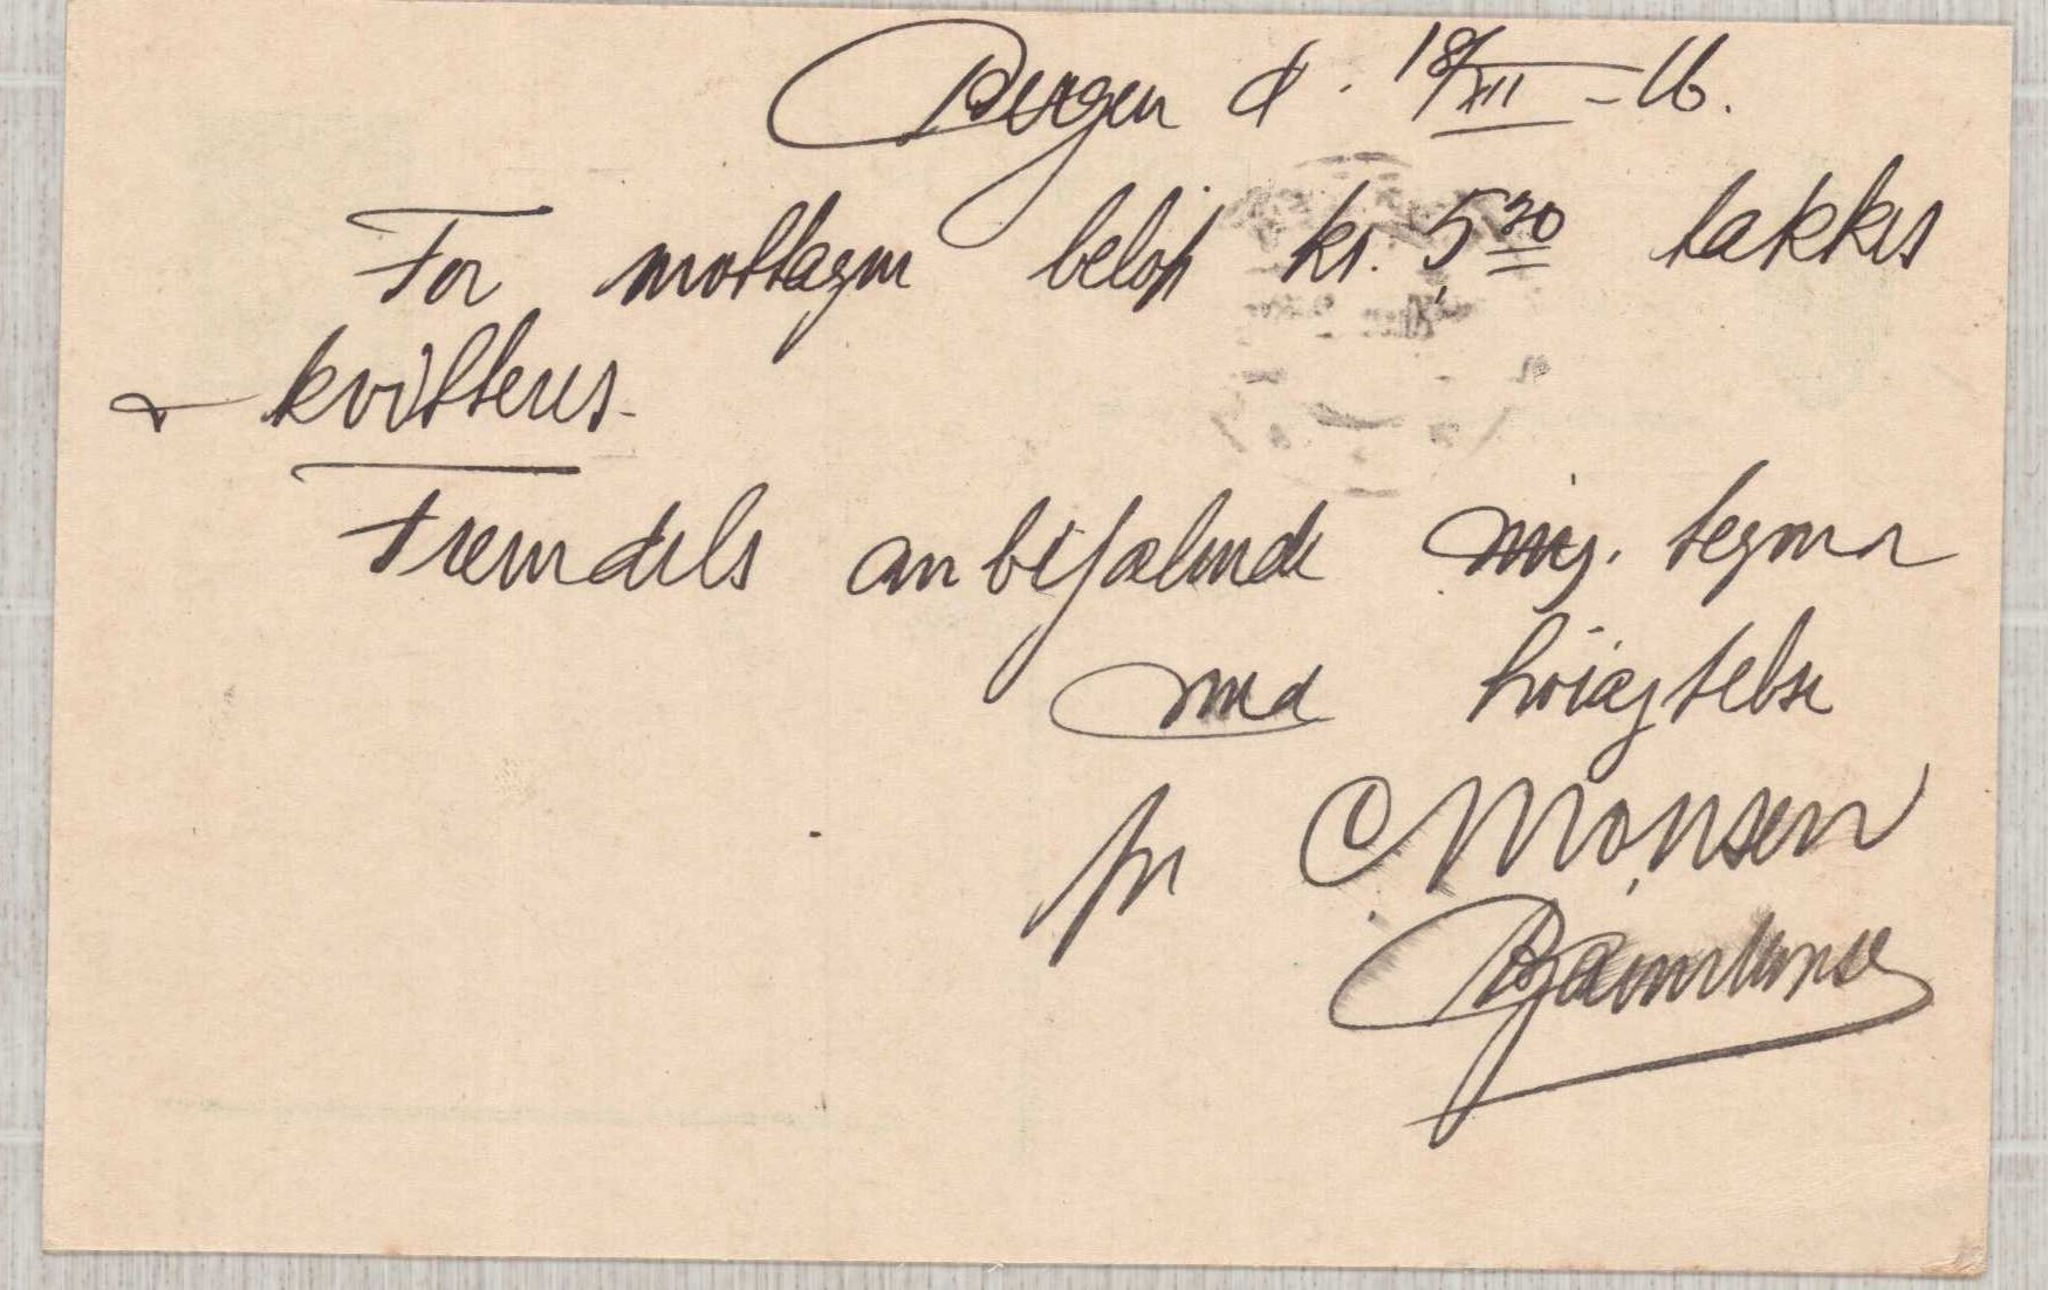 Bergen d. 18/XII - 16.
For mottagen beløp kr. 5,20 takkes
& kvitteres.
Fremdeles anbefalende mig. tegner
med høiagtelse
pr C Monsen